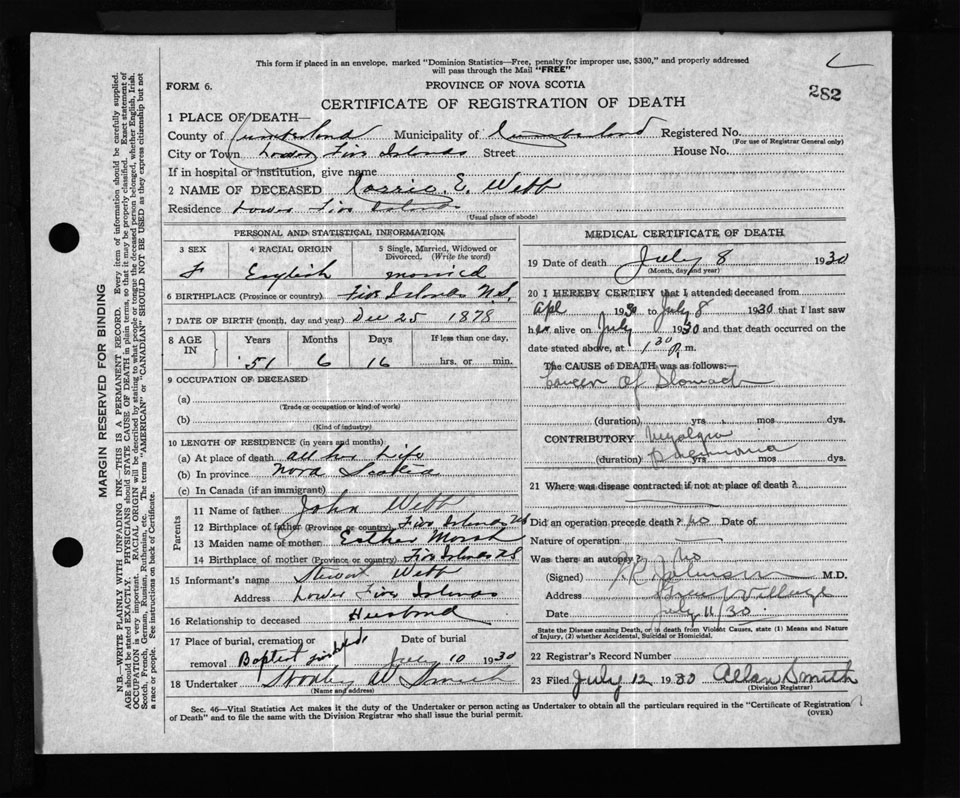 This form if placed in an envelope, marked "Dominion Statistics—Free, penalty for improper use, $300," and properly addressed
will pass through the Mail "FREE"
FORM 6.
PROVINCE OF NOVA SCOTIA
282
CERTIFICATE OF REGISTRATION OF DEATH
1 PLACE OF DEATH—
County of Cumberland Municipality of Cumberland Registered No.
(For use of Registrar General only)
City or Town Lower Five Islands Street House No.
If in hospital or institution, give name
2 NAME OF DECEASED E. Webb
Residence Lower Five Islands
(Usual place of abode)
PERSONAL AND STATISTICAL INFORMATION
3 SEX 4 RACIAL ORIGIN 5 Single, Married, Widowed or Divorced. (Write the word)
F English married
6 BIRTHPLACE (Province or country) Five Islands N.S.
7 DATE OF BIRTH (month, day and year) Dec 25 1878
8 AGE IN Years Months Days If less than one day,
51 6 16 hrs. or min.
9 OCCUPATION OF DECEASED
(a)
(Trade or occupation or kind of work)
(b)
(Kind of industry)
10 LENGTH OF RESIDENCE (in years and months)
(a) At place of death all her Life
(b) In province Nova Scotia
(c) In Canada (if an immigrant)
Parents
11 Name of father John Webb
12 Birthplace of father (Province or country) Five Islands NS
13 Maiden name of mother Esther Morsh
14 Birthplace of mother (Province or country) Five Islands NS
15 Informant's name Stewart Webb
Address Lower Five Islands
16 Relationship to deceased Husband
17 Place of burial, cremation or removal Baptist Date of burial July 10 1930
18 Undertaker W Smith
(Name and address)
MEDICAL CERTIFICATE OF DEATH
19 Date of death July 8 1930
(Month, day and year)
20 I HEREBY CERTIFY that I attended deceased from
Apl 1930 to July 8 1930 that I last saw
her alive on July 1930 and that death occurred on
date stated above, at 1 30 P. m.
The CAUSE of DEATH was as follows:—
Cancer of Stomach
(duration) yrs. mos dys.
CONTRIBUTORY
(duration) yrs mos dys.
21 Where was disease contracted if not at place of death?
Did an operation precede death? no Date of
Nature of operation
Was there an autopsy? No
(Signed) Johnson M.D.
Address Village
Date July 11/30
State the Disease causing Death, or, in death from Violent Causes, state (1) Means and Nature
of Injury, (2) whether Accidental, Suicidal or Homicidal.
22 Registrar's Record Number
23 Filed July 12 1930 Allan Smith
(Division Registrar)
Sec. 46—Vital Statistics Act makes it the duty of the Undertaker or person acting as Undertaker to obtain all the particulars required in the "Certificate of Registration
of Death" and to file the same with the Division Registrar who shall issue the burial permit.
(OVER)
MARGIN RESERVED FOR BINDING
N.B.—WRITE PLAINLY WITH UNFADING INK—THIS IS A PERMANENT RECORD. Every item of information should be carefully supplied.
AGE should be stated EXACTLY. PHYSICIANS should STATE CAUSE OF DEATH in plain terms, so that it may be properly classified. Exact statement of
OCCUPATION is very important. RACIAL ORIGIN will be described by stating to what people or tongue the deceased person belonged, whether English, Irish,
Scotch, French, German, Russian, Ruthenian, etc. The terms "AMERICAN" or "CANADIAN" SHOULD NOT BE USED as they express citizenship but not
a race or people. See instructions on back of Certificate.